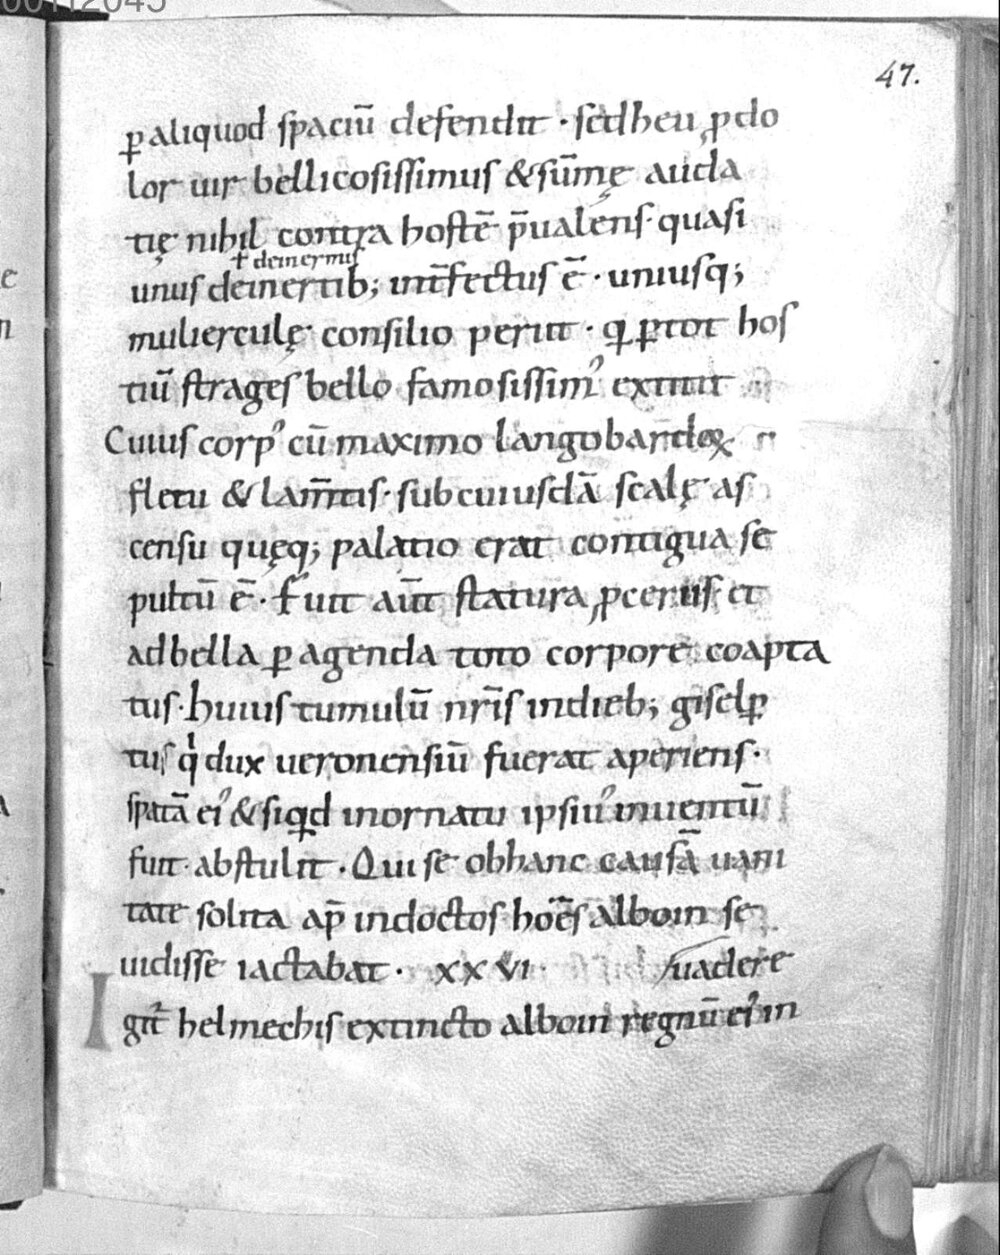 00112045
47.
ꝑ aliquod ſpaciū defendit · ſed heu ꝓ do
lor uir bellicoſiſſimuſ & sūmę auda
tię nihil contra hoſtē p̄ualenſ· quaſi
ł deinermiſ
unuſ deinertib; int̄fectuſ ē · uniuſq;
mulierculę conſilio periit · q ꝑ tot hoſ
tiū ſtrageſ bello famoſiſſimꝰ extitit
Cuiuſ corpꝰ cū maximo langobardoꝝ
fletu & lam̄tiſ· ſub cuiuſdā ſcalę aſ
cenſu quęq; palatio erat contigua ſe
pultū ē · Fuit aūt ſtatura ꝓceruſ· et
ad bella ꝑagenda toto corpore coapta
tuſ· huiuſ tumulū nr̄iſ in dieb; giſelꝑ
tuſ q dux ueronenſiū fuerat aperienſ·
ſpatā eiꝰ & ſiqd in ornatu ipſiuꝰ inuentū
fuit· abſtulit · Qui ſe ob hanc cauſā uani
tate ſolita ap̄ indoctoſ hoēſ alboin ſe
uidiſſe iactabat · xxvi ſuadere
Igit̄ helmechiſ extincto alboin regnū eiꝰ in